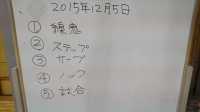 2015年12月5日
① 線鬼
② ステップ
③ サーブ
④ ノック
⑤ 試合